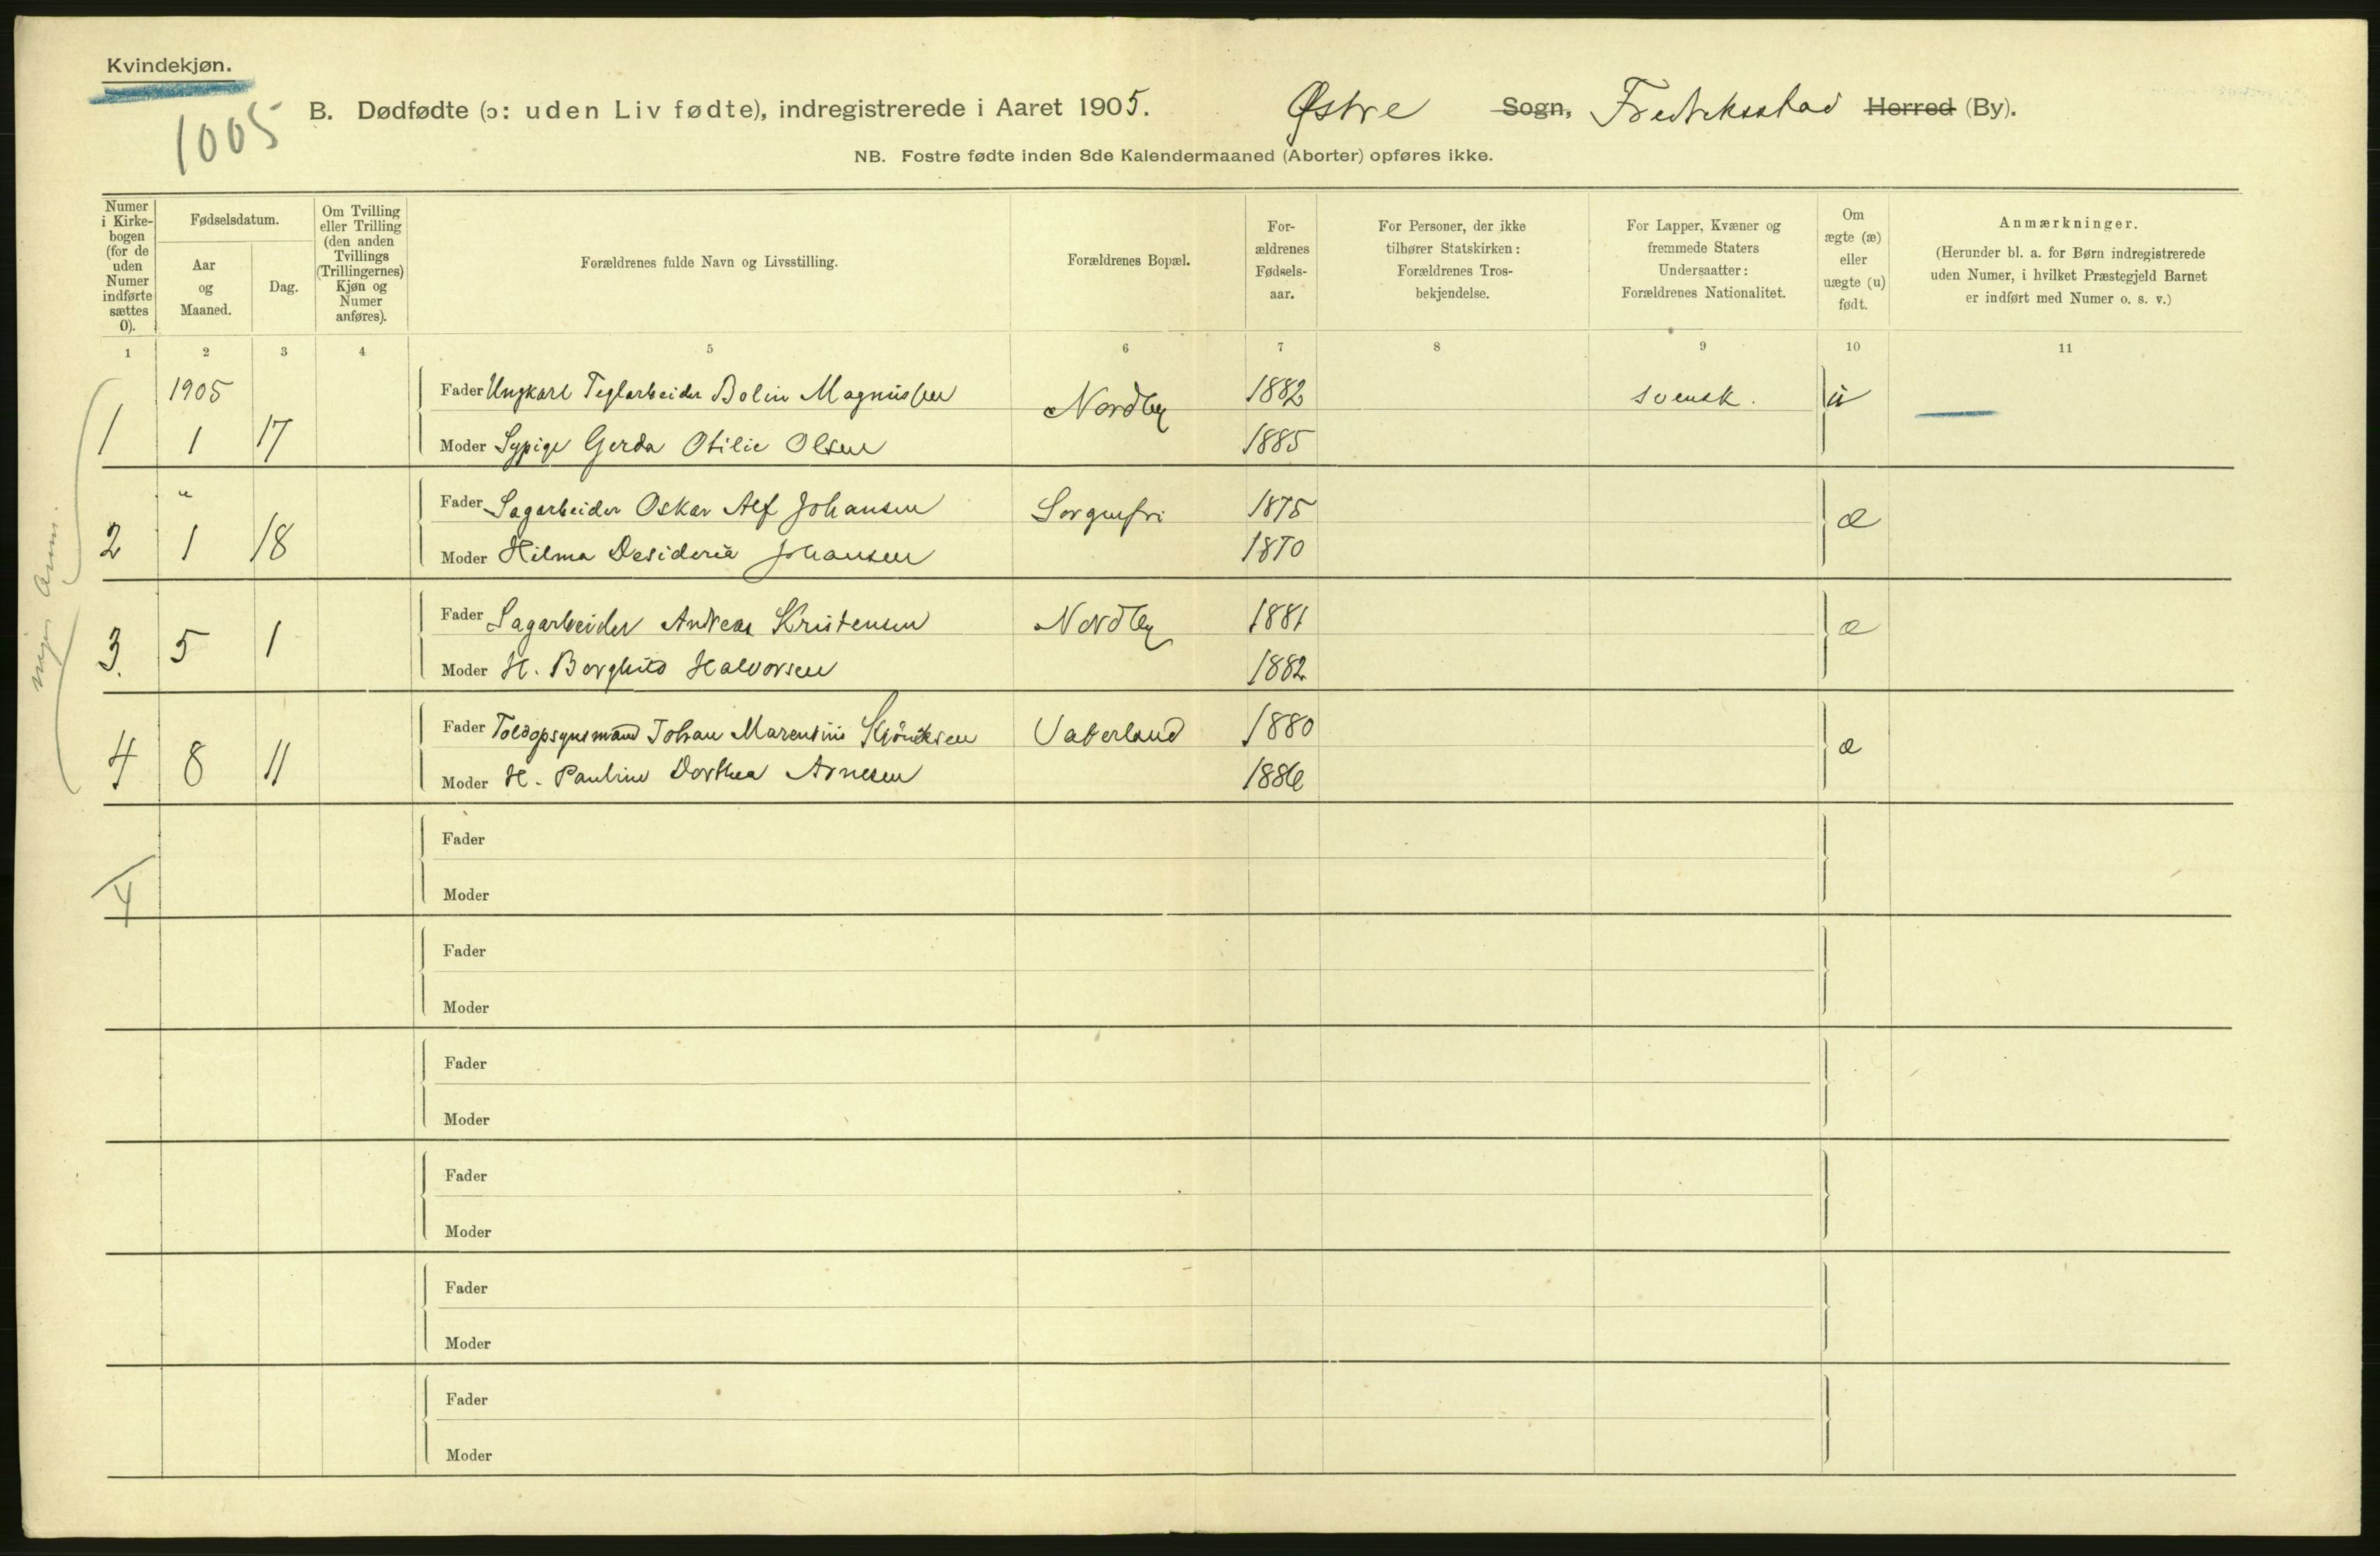 Kvindekjøn.
1005
B. Dødfødte (ɔ: uden Liv fødte), indregistrerede i Aaret 1905. Østre Sogn, Fredriksstad Herred (By).
NB. Fostre fødte inden 8de Kalendermaaned (Aborter) opføres ikke.
Numer i Kirkebogen (for de uden Numer indførte sættes 0).
Fødselsdatum.
Aar og Maaned.
Dag.
Om Tvilling eller Trilling (den anden Tvillings (Trillingernes) Kjøn og Numer anføres).
Forældrenes fulde Navn og Livsstilling.
Forældrenes Bopæl.
For-ældrenes Fødsels-aar.
For Personer, der ikke tilhører Statskirken: Forældrenes Tros-bekjendelse.
For Lapper, Kvæner og fremmede Staters Undersaatter: Forældrenes Nationalitet.
Om ægte (æ) eller uægte (u) født.
Anmærkninger.
(Herunder bl. a. for Børn indregistrerede uden Numer, i hvilket Præstegjeld Barnet er indført med Numer o. s. v.)
1 2 3 4 5 6 7 8 9 10 11
1905
Fader Ungkarl Teglarbeider Bolin Magnussen Nordby 1882 svensk. u
1 1 17 Moder Sypige Gerda Otilie Olsen 1885
"
Fader Sagarbeider Oskar Alf Johansen Sorgenfri 1875 æ
2 1 18 Moder Hilma Desideria Johansen 1870
Fader Sagarbeider Andreas Kristensen Nordby 1881 æ
3. 5 1 Moder H. Borghild Halvorsen 1882
Fader Toldopsynsmand Johan Marensius Vaterland 1880 æ
4 8 11 Moder H. Pauline Dorthea Arnesen 1886
Fader
4
Moder
Fader
Moder
Fader
Moder
Fader
Moder
Fader
Moder
Fader
Moder